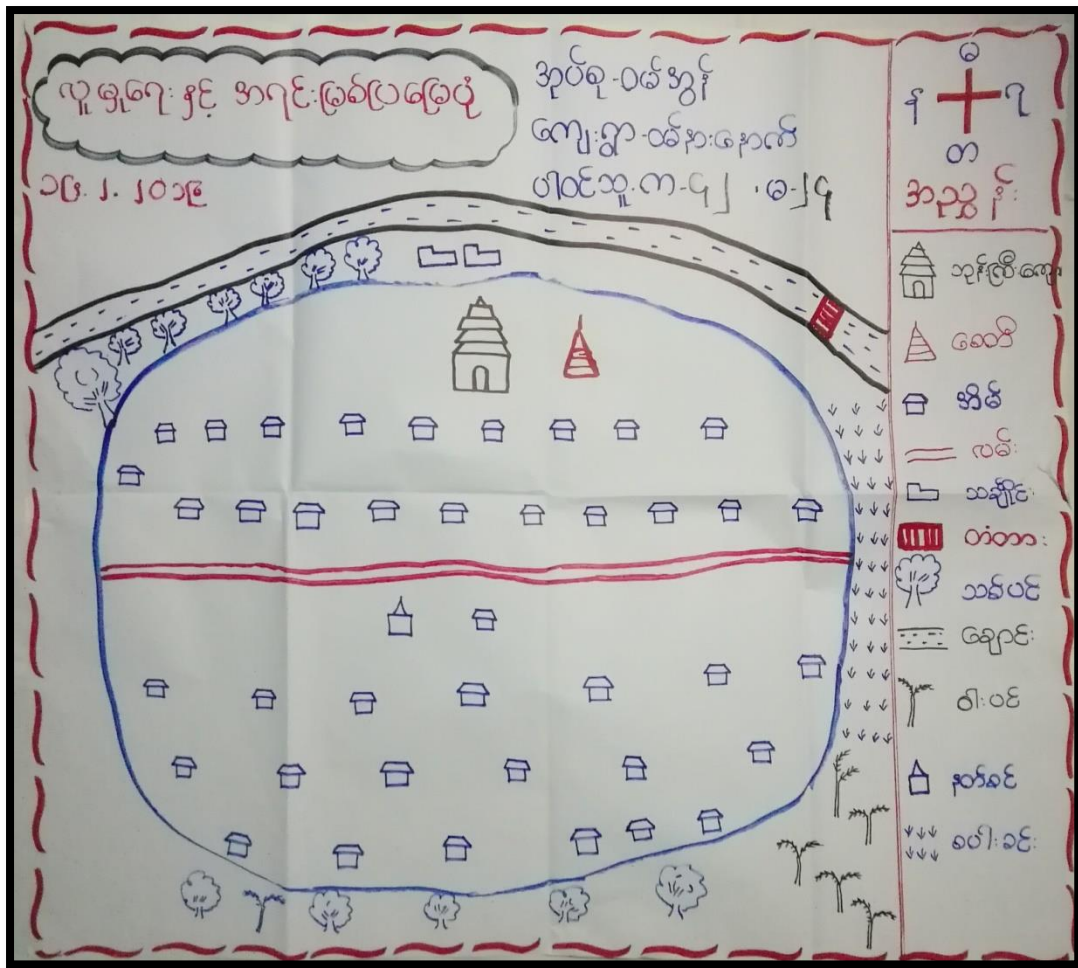 လူမှုရေးနှင့် အရင်းမြစ်ပြမြေပုံ
၁၄.၂.၂၀၁၉
အုပ်စု-ဝမ်အွန်
ကျေးရွာ-ဝမ်နားနောက်
ပါဝင်သူ-ကျ-၄၂ ၊ မ-၂၄
မ
န
ဂ
တ
အညွှန်း
ဘုန်းကြီးကျောင်း
စေတီ
အိမ်
လမ်း
သချိုင်း
တံတား
သစ်ပင်
ချောင်း
ဝါးပင်
နတ်စင်
စပါးခင်း